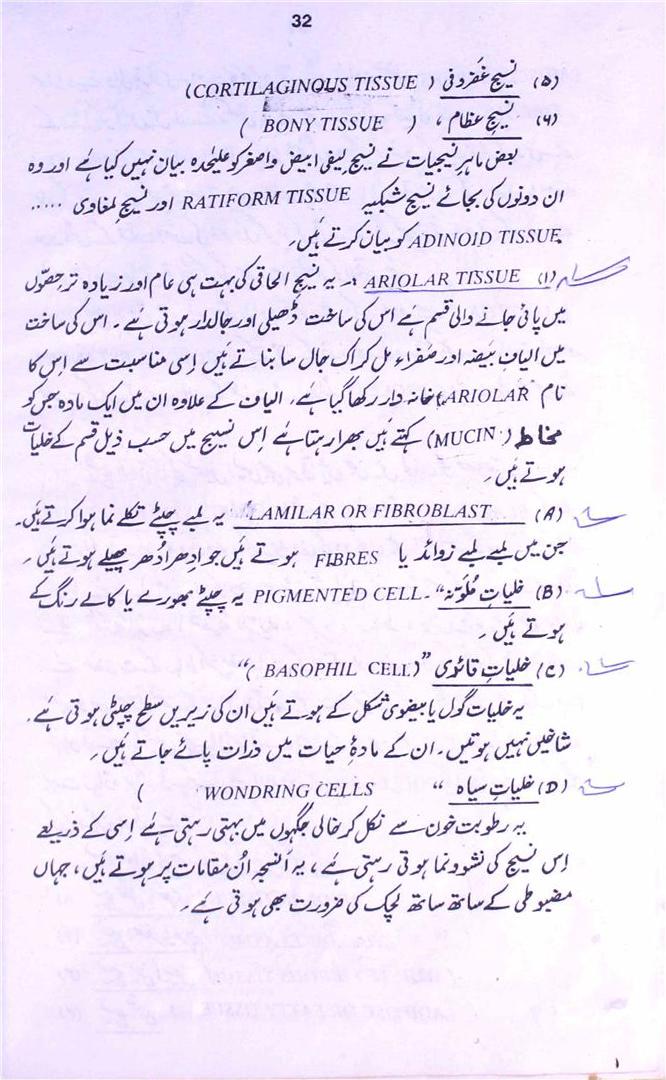 32
(۵) نسیج غفروفی (CORTILAGINOUS TISSUE)
(۶) نسیج عظام، ( BONY TISSUE )
بعض ماہر نسیجیات نے نسیج لیفی ابیض واصفر کو علیٰحدہ بیان نہیں کیا ہے اور وہ
ان دونوں کی بجائے نسیج شبکیہ RATIFORM TISSUE اور نسیج لمغاوی .....
ADINOID TISSUE. کو بیان کرتے ہیں۔
(۱) ARIOLAR TISSUE ۔ یہ نسیج الحاقی کی بہت ہی عام اور زیادہ تر حصّوں
میں پائی جانے والی قسم ہے اس کی ساخت ڈھیلی اور جالدار ہوتی ہے۔ اس کی ساخت
میں الیاف بیضہ اور صفراء مل کر اک جال سا بناتے ہیں اِسی مناسبت سے اِس کا
نام ARIOLAR) خانہ دار رکھا گیا ہے، الیاف کے علاوہ ان میں ایک مادہ جس کو
مخاط (MUCIN) کہتے ہیں بھرا رہتا ہے اِس نسیج میں حسب ذیل قسم کے خلیات
ہوتے ہیں۔
(A) LAMILAR OR FIBROBLAST یہ لمبے چپٹے تکلے نما ہوا کرتے ہیں۔
جن میں لمبے لمبے زوائد یا FIBRES ہوتے ہیں جو اِدھر اُدھر پھیلے ہوتے ہیں۔
(B) خلیات مُلوّنہ“۔ PIGMENTED CELL یہ چپٹے بھورے یا کالے رنگ کے
ہوتے ہیں۔
(C) خلیاتِ قائدی ”(BASOPHIL CELL )“
یہ خلیات گول یا بیضوی شکل کے ہوتے ہیں ان کی زیریں سطح چپٹی ہوتی ہے۔
شاخیں نہیں ہوتیں۔ ان کے مادۂ حیات میں ذرات پائے جاتے ہیں۔
(D) خلیاتِ سیاہ “ WONDRING CELLS )
یہ رطوبت خون سے نکل کر خالی جگہوں میں بہتی رہتی ہے اِسی کے ذریعے
اِس نسیج کی نشوونما ہوتی رہتی ہے، یہ اَنسجہ اُن مقامات پر ہوتے ہیں، جہاں
مضبوطی کے ساتھ ساتھ لچک کی ضرورت بھی ہوتی ہے۔